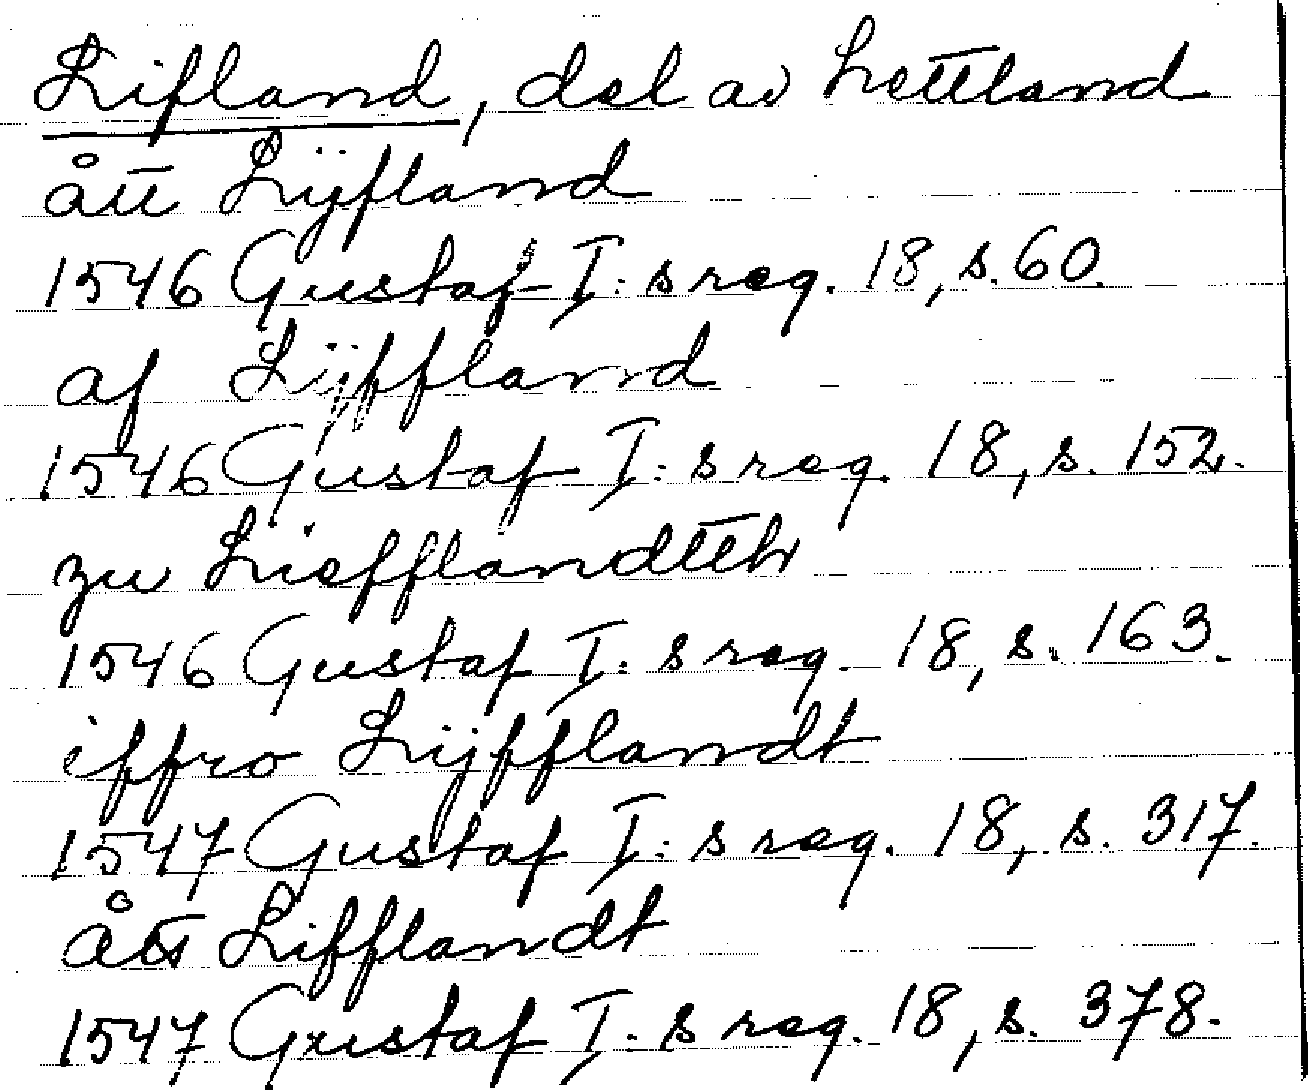 Lifland, del av Lettland
ått Lÿfland
1546 Gustaf I:s reg. 18, s. 60.
af Lÿffland
1546 Gustaf I:s reg. 18, s. 152.
zu Liefflandtth
1546 Gustaf I:s reg. 18, s. 163.
iffro Lijfflandt
1547 Gustaf I:s reg. 18, s. 317.
ått Lifflandt
1547 Gustaf I:s reg. 18, s. 378.